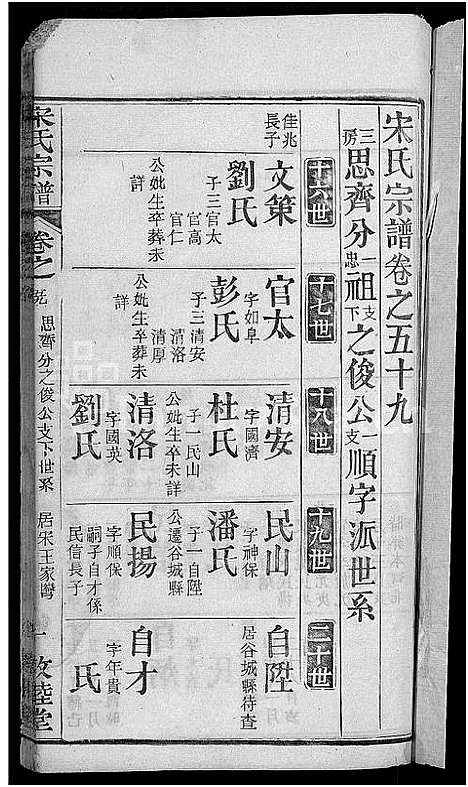 宋氏宗譜卷之五十九
三房思齊分一忠祖支下之俊公一支順字派世系
十六世
十七世
十八世
十九世
二十世
佳兆長子
文策
劉氏
子三官太
官高
官仁
公妣生卒葬未
詳
官太
字如阜
彭氏
子三清安
清洛
清厚
公妣生卒葬未
詳
清安
字國濟
杜氏
子一民山
公妣生卒未詳
清洛
字國英
劉氏
民山
字神保
潘氏
子一自陞
公遷谷城縣
民揚
字順保
嗣子自才係
民信長子
自陞
居谷城縣待查
自才
字年貴
氏
宋氏宗譜
卷之
思齊分之俊公支下世系
居宋王家灣
一
敦睦堂